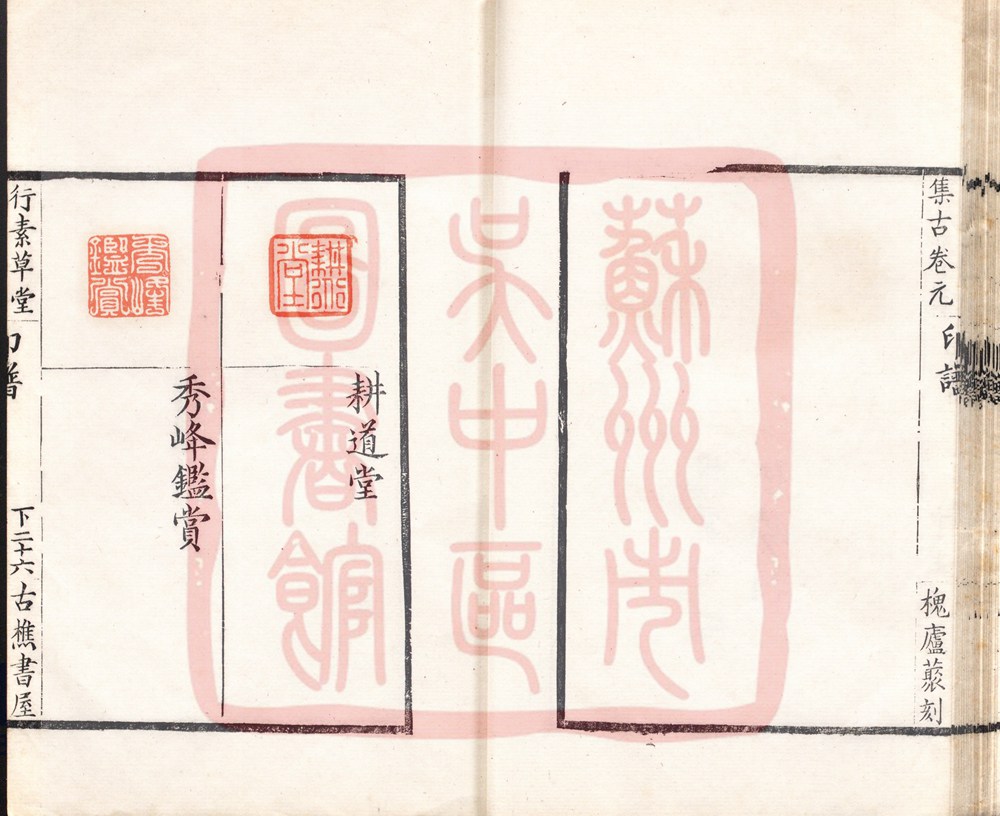 集古卷元
印譜
槐廬蓑刻
蘇州市
吳中區
圖書館
耕道堂
耕道堂
秀峰鑑賞
秀峰鑑賞
行素草堂
印譜
下二十六古樵書屋